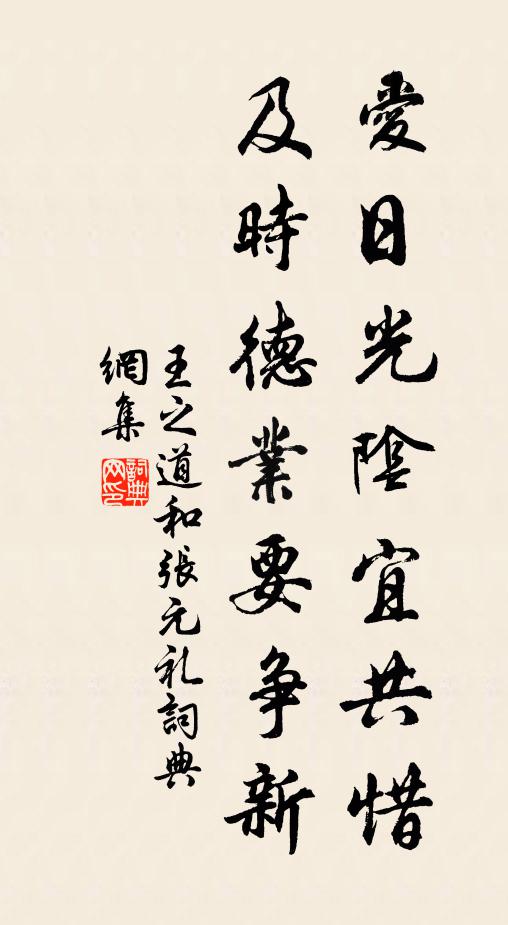 愛日光陰宜共惜
及時德業要争新
王之道和張元礼詞典
網集
詞典
网印